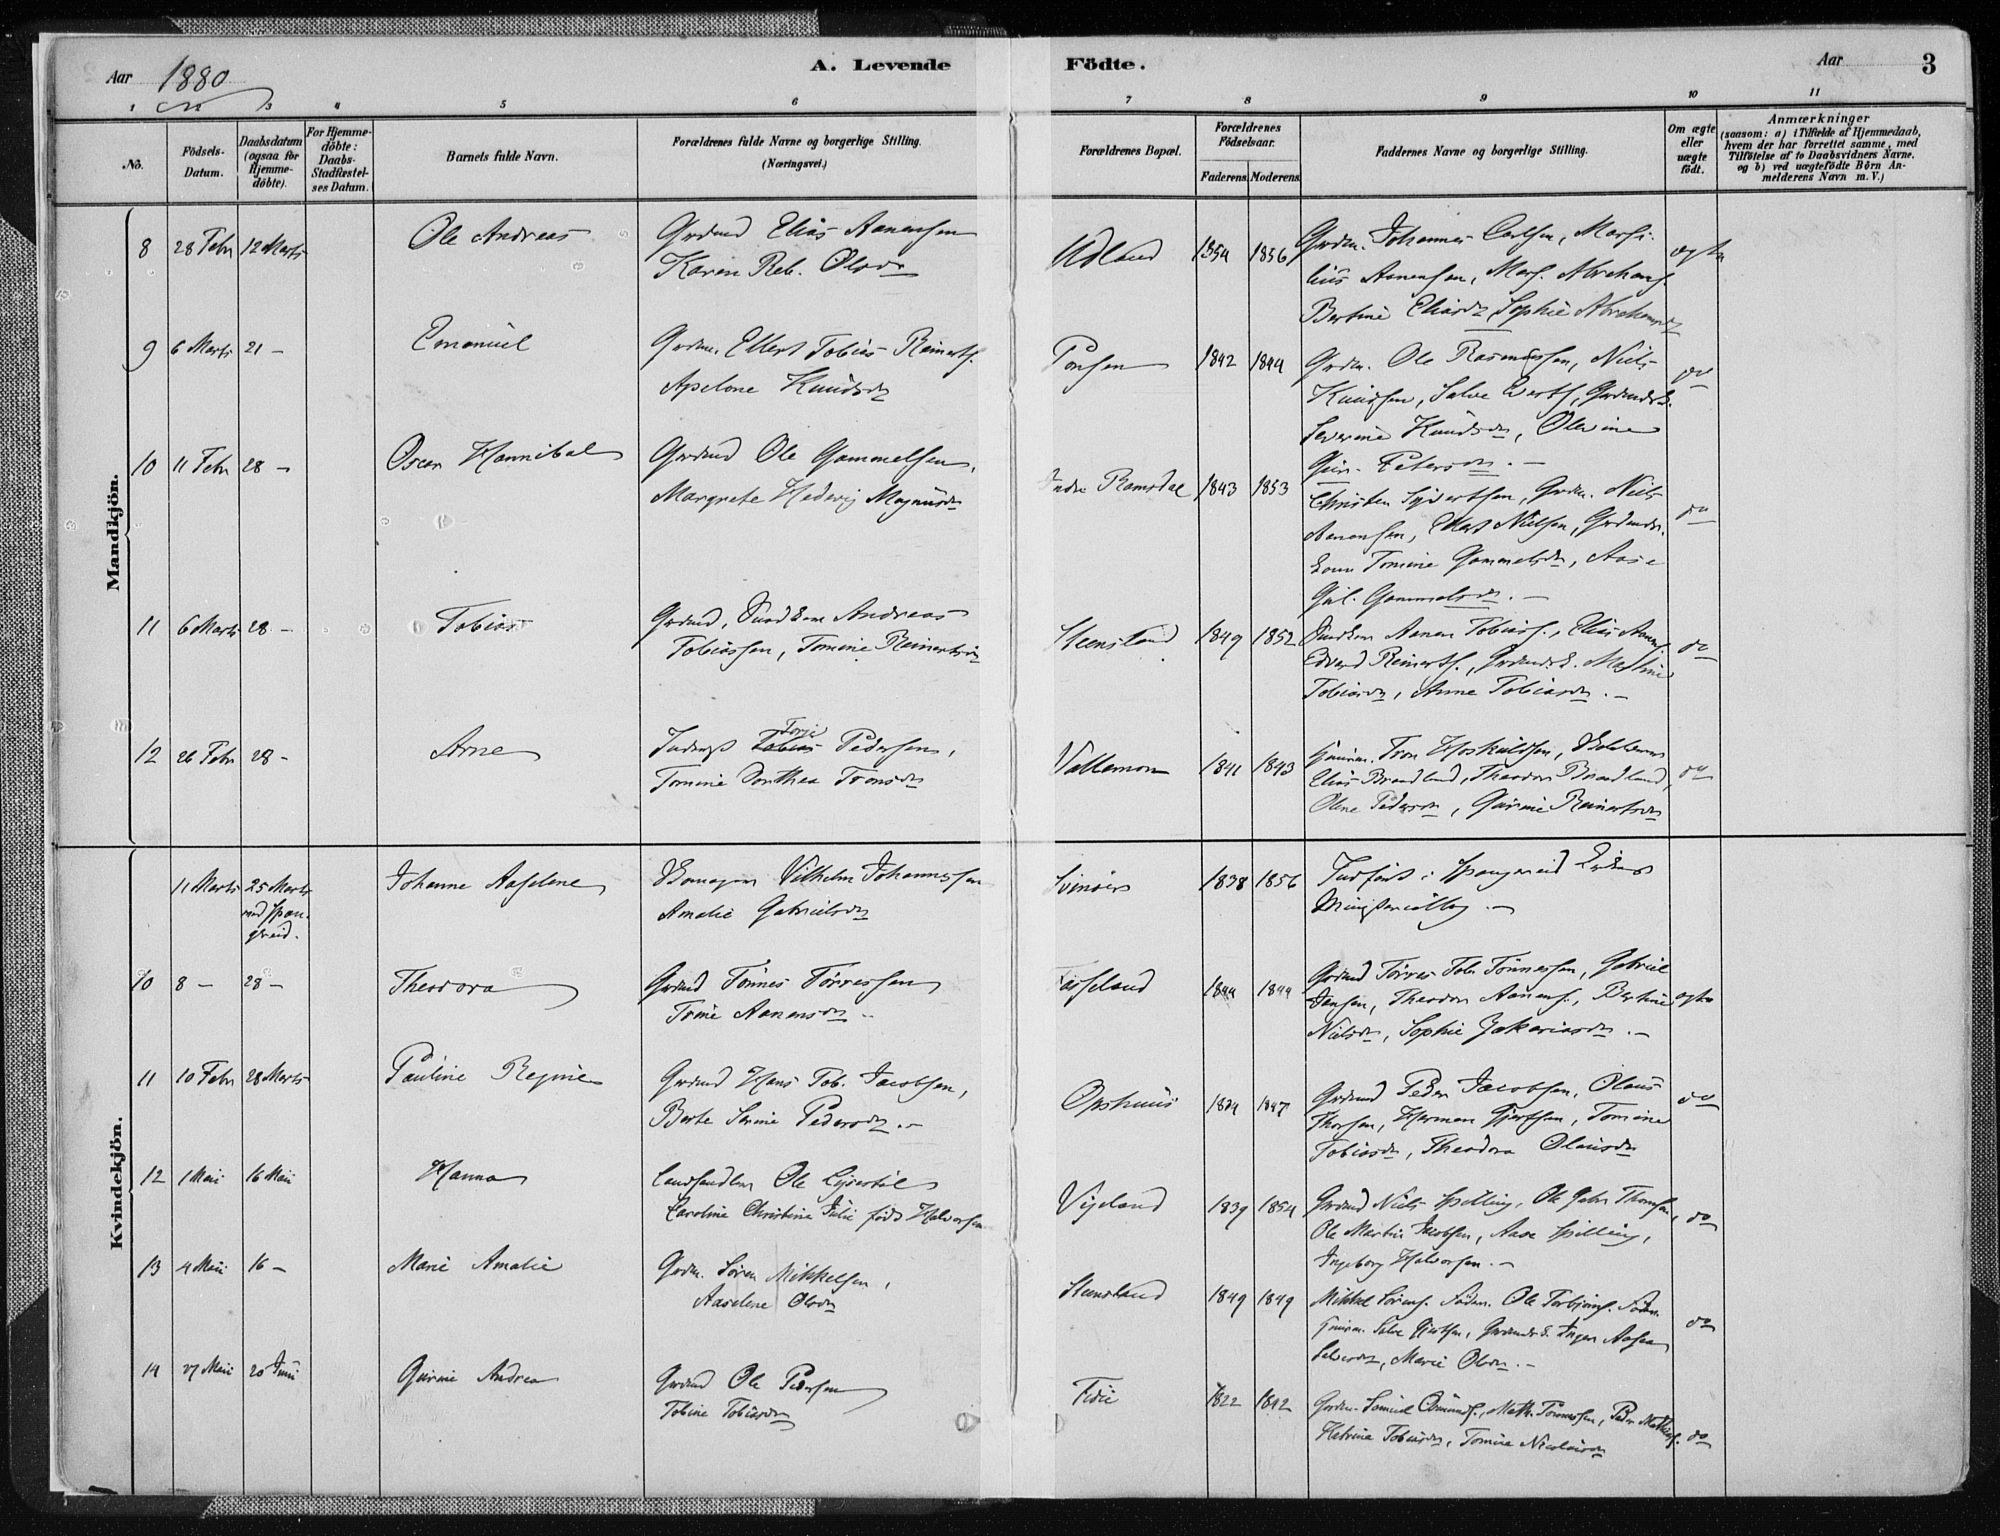 Aar 1880
A. Levende Födte.
Aar
3
1 2 3 4 5 6 7 8 9 10 11
No.
Födsels-Datum.
Daabsdatum (ogsaa for Hjemme-döbte).
For Hjemme-döbte: Daabs-Stadfæstel-ses Datum.
Barnets fulde Navn.
Forældrenes fulde Navne og borgerlige Stilling. (Næringsvei.)
Forældrenes Bopæl.
Forældrenes Födselsaar.
Faderens Moderens
Faddernes Navne og borgerlige Stilling.
Om ægte eller uægte födt.
Anmærkninger
(saasom: a) i Tilfælde af Hjemmedaab, hvem der har forrettet samme, med Tilföielse af to Daabsvidners Navne, og b) ved uægtefödte Börn An-melderens Navn m. V.)
Mandkjön.
8 28 Febr 12 Marts Ole Andreas Grdmd Elias Aanensen
Karen Reb. Olsdr
Udland 1854 1856 Grdm. Johannes Carlsen, Marsi-
lius Aanensen, Abrahams.
Bertine Eliasdr, Sophie Abrahamsdr
ægte
9 6 Marts 21 - Emanuel Grdm. Ellert Tobias Reinerts.
Apelone Knudsdr
1842 1844 Grdm. Ole Rasmussen, Niels
Knudsen, Salve
Severine Knudsdr, Olevine
Petersdr. -
do
10 11 Febr 28 - Oscar Hannibal Grdmd Ole Gammelsen,
Margrete Hedevig Magnusdr
Indre Ramsdal 1843 1853 Christen Syvertsen, Grdm. Niels
Aanensen, Ellert Nielsen,
Tomine Gammelsdr, Aase
Gammelsdr. -
do
11 6 Marts 28 - Tobias Grdmd, Andreas
Tobiassen, Tomine Reinertsdr
Steensland 1849 1852 Aanen Tobias., Elias Aanens.
Edvard Reinerts.,
Tobiasdr, Anne Tobiasdr. -
do
12 26 Febr 28 - Arne Torje
Tobias Pedersen,
Tomine Dorthea Tronsdr
Vallemon 1841 1843 Tron Hoskuldsen,
Elias Brandland, Theodor Brandland,
Olene Pedersdr, Gurine Reinertsdr
do
Kvindekjön.
11 Marts 25 Marts
ved Span-
gereid.
Johanne Aaselene Vilhelm Johannessen
Amalie Gabrielsdr
Svinöer 1838 1856 Indfört i Spangereid Kirkes
Ministerialbog. -
10 8 - 28 - Theodora Grdmd Tönnes Törressen
Trine Aanensdr. -
1844 1844 Grdmd Törres Tob. Tönnessen, Gabriel
Jensen, Theodor Aanens., Bertine
Nielsdr, Sophie Zakariasdr. -
ægte
11 10 Febr 28 Marts Pauline Regine Grdmd Hans Tob. Jacobsen,
Berte Serine Pedersdr. -
Opshuus 1847 Grdmd Peder Jacobsen, Olaus
Thorsen, Herman Gjertsen, Tomine
Tobiasdr, Theodora Olausdr
do
12 1 Mai 16 Mai Hanna Landhandler Ole Lysestöl
Caroline Christine Julie födt Halvorsen
Vigeland 1839 1854 Grdmd Niels Spilling, Ole Gabr Thomsen,
Ole Martin Jacobsen, Aase Spilling,
Ingeborg Halvorsen. -
do
13 4 Mai 16 - Marie Amalie Grdm. Sören Mikkelsen,
Aaselene Olsdr
Steensland 1849 1849 Mikkel Sörens. Ole Torbjörns.
Salve Gjertsen, Inger Aasea
Salvesdr, Marie Olsdr. -
do
14 27 Mai 20 Juni Gurine Andrea Grdmd Ole Pedersen
Tobine Tobiasdr
Fidie 1822 1842 Grdm. Samuel Osmunds., Math. Tönnessen, Peder Mathias.
Katrine Tobiasdr, Tomine Nicolaisdr
do